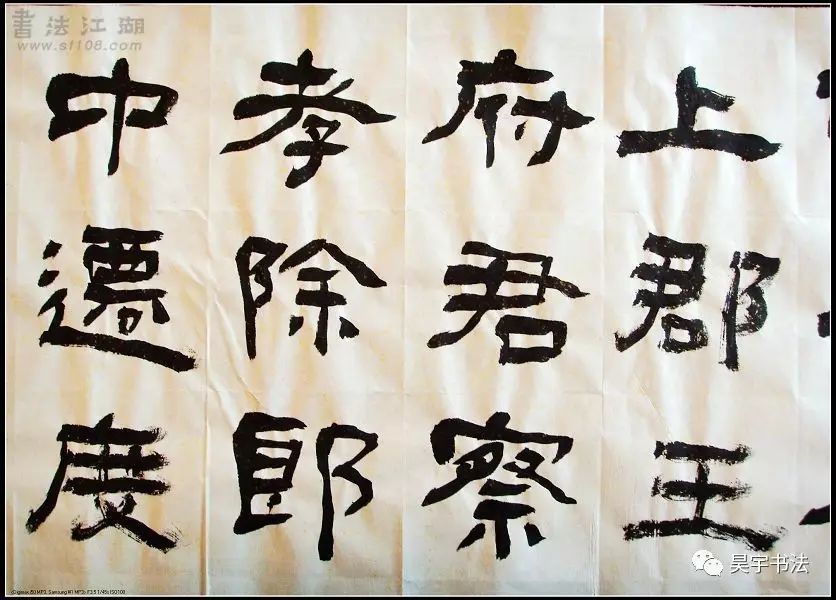 上郡王
府君察
孝除郎
中遷度
書法江湖
www.sf108.com
昊宇书法